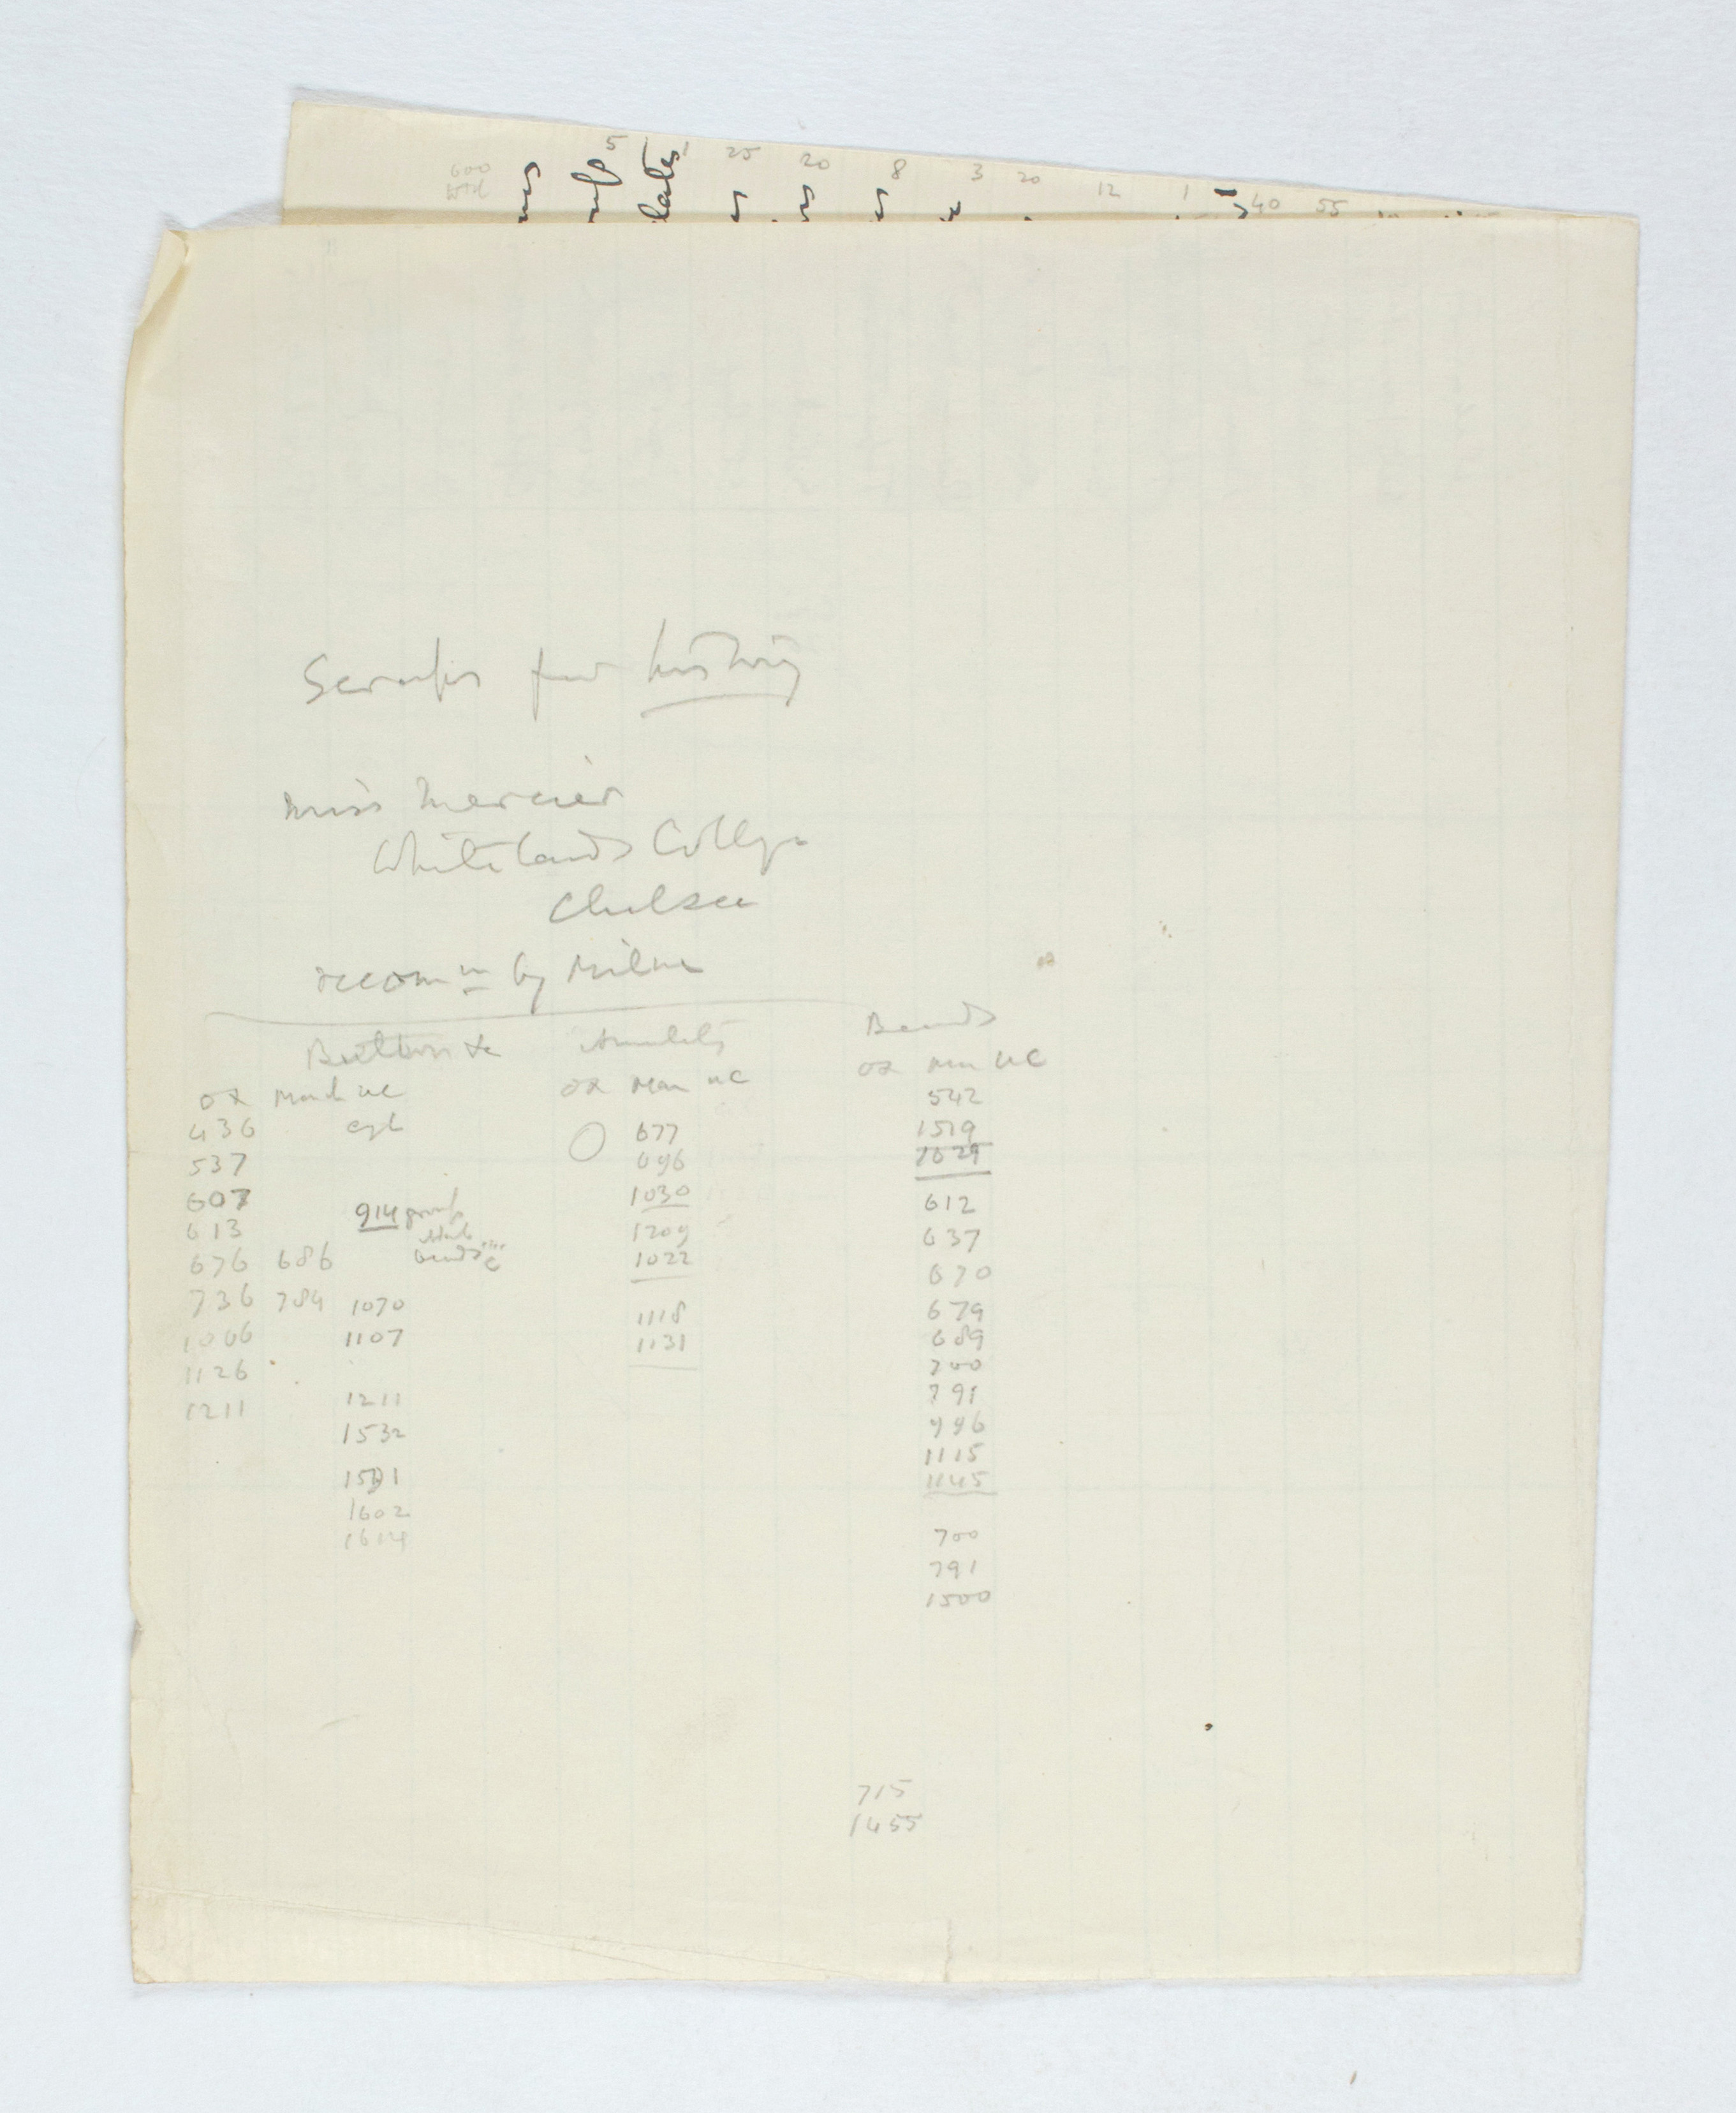 600
5 1 25 20 8 3 20 12 1 40 55
lates
Scraps for history
Miss Mercier
Whitelands College
Chelsea
recom<sup>n</sup> by Milne
Buttons &c Amulets Beads
OX Manch UC OX Man UC OX Man UC
436 egl 677 542
537 696 1519
607 914 group 1030 1029
613 1209 612
beads 1022 637
676 686 670
736 784 1070 1118 679
1066 1107 1131 689
1126 700
1211 1211 791
1532 996
1591 1115
1602 1145
1614 700
791
1500
715
1455